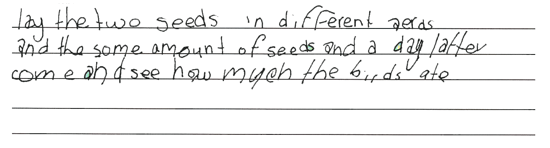 lay the two seeds in different aeras
and the same amount of seeds and a day latter
come and see how much the birds ate